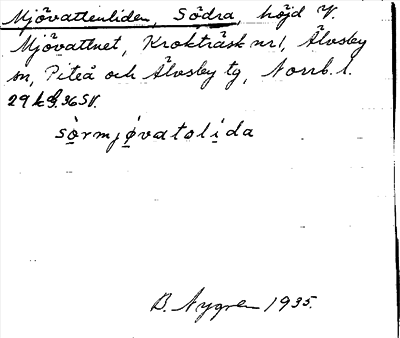 Mjövattenliden, Södra, höjd V.
Mjövattnet, Krokträsk nr 1, Älvsby
sn, Piteå och Älvsby tg, Norrb. l.
29 k 36 SV.
sòrmjǿvatolída
B. Nygren 1935.